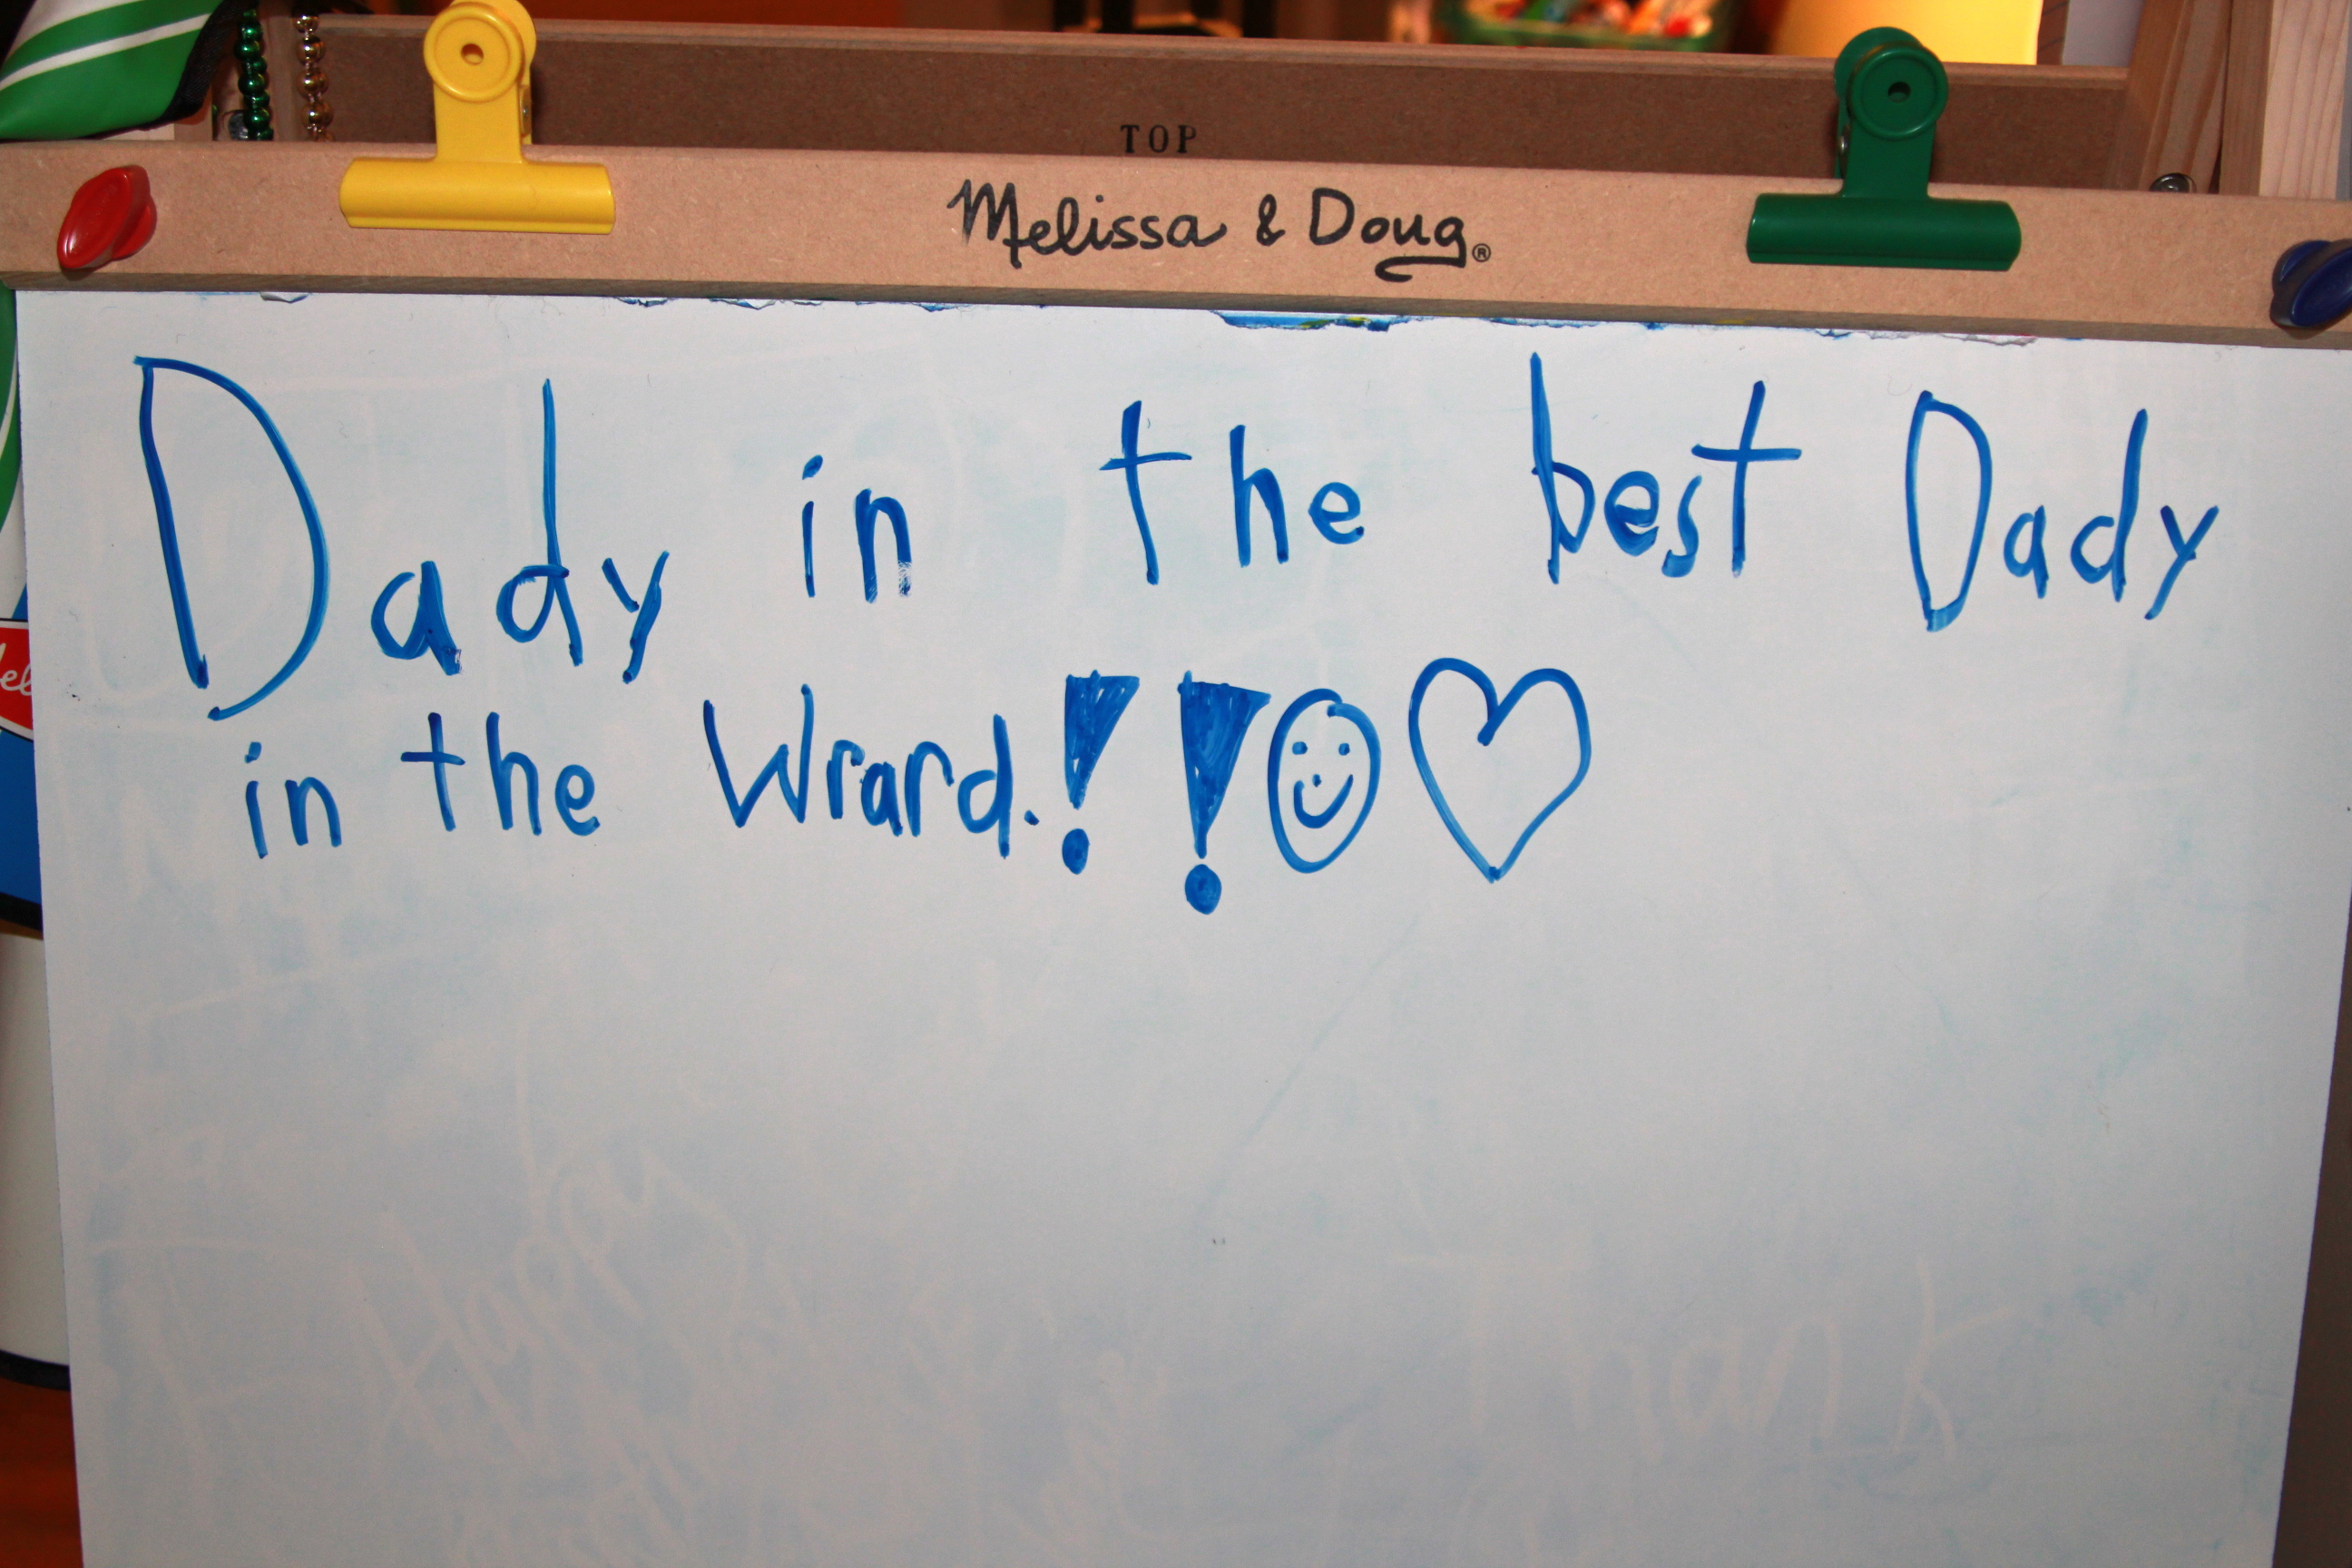 TOP
Melissa & Doug®
Dady in the best Dady
in the Wrard.!!☺♡
Happy
Thank